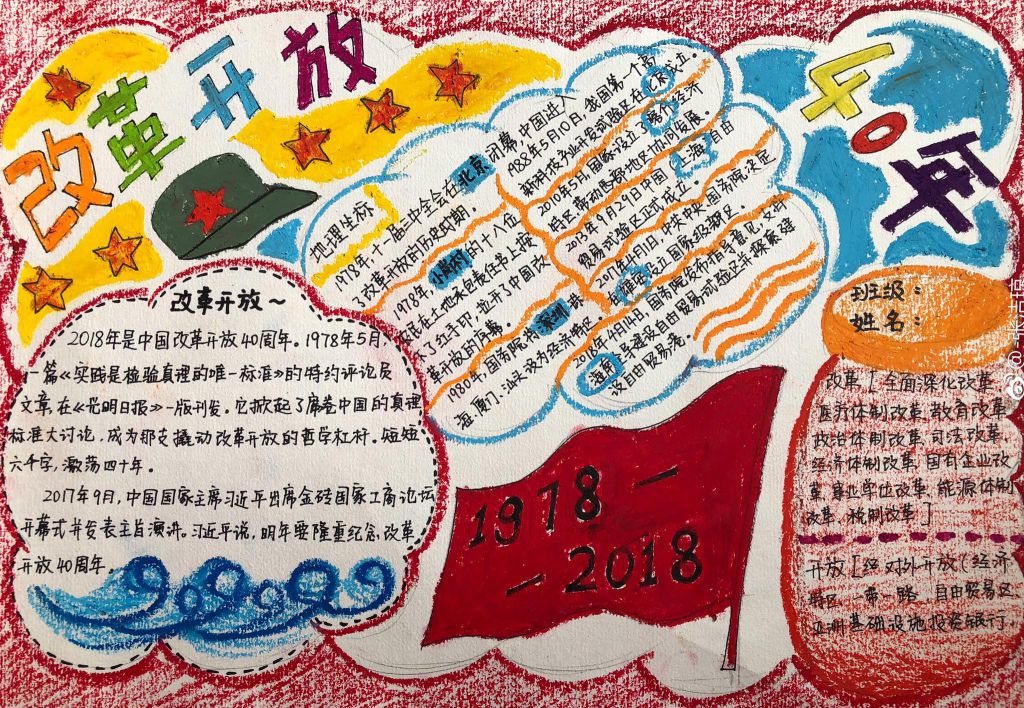 改革开放
40年
改革开放~
2018年是中国改革开放40周年。1978年5月,
一篇《实践是检验真理的唯一标准》的特约评论员
文章,在《光明日报》一版刊发。它掀起了席卷中国的真理
标准大讨论,成为那支撬动改革开放的哲学杠杆。短短
六千字,激荡四十年。
2017年9月,中国国家主席习近平出席金砖国家工商论坛
开幕式并发表主旨演讲。习近平说,明年要隆重纪念改革
开放40周年。
地理坐标
1978年,十一届三中全会在北京闭幕,中国进入
了改革开放的历史时期。
1978年,小岗村的十八位
农民在土地承包责任书上按
下了红手印,拉开了中国改
革开放的序幕。
1980年,国务院将深圳、珠
海、厦门、汕头设为经济特区。
1988年5月10日,我国第一个高
新科技产业开发试验区在北京成立。
2010年5月,国家设立喀什经济
特区,带动西部地区协同发展。
2013年9月29日中国上海自由
贸易试验区正式成立。
2017年4月1日,中共中央、国务院决定
在雄安设立国家级新区。
2018年4月14日,国务院发布指导意见,支持
海南全岛建设自由贸易试验区并探索建
设自由贸易港。
1978—
—2018
班级:
姓名:
改革[全面深化改革
医疗体制改革,教育改革
政治体制改革,司法改革,
经济体制改革,国有企业改
革,事业单位改革,能源体制
改革,税制改革]
开放[经 对外开放(经济
特区、一带一路、自由贸易区
亚洲基础设施投资银行,